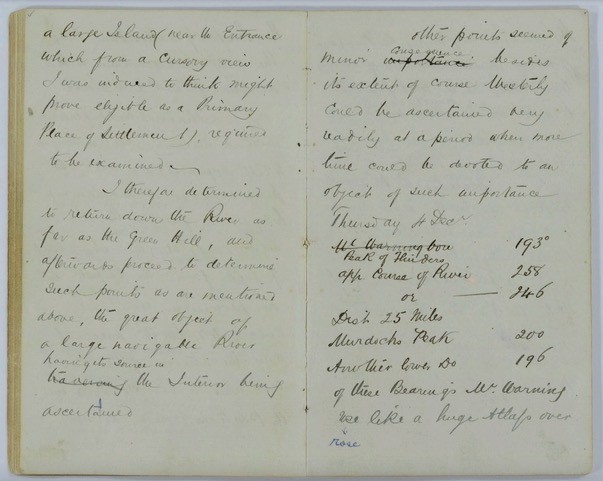 a large Island (near the Entrance
which from a cursory view
I was induced to think might
prove eligible as a Primary
Place of Settlement), required
to be examined
I therefore determined
to return down the River as
far as the Green Hill, and
afterwards proceed to determine
such points as are mentioned
above, the great object of
a large navigable River
having its source in
traversing the Interior being
ascertained
other points seemed of
consequence
minor importance besides
its extent of course Westerly
could be ascertained very
readily at a period when more
time could be devoted to an
object of such importance
Thursday 4 Decr
Mt Warning bore 193°
Peak of Flinders
app Course of River 258
or — 246
Dist 25 Miles
Murdochs Peak 200
Another lower Do 196
of these Bearings Mt Warning
like a huge Atlas over
rose